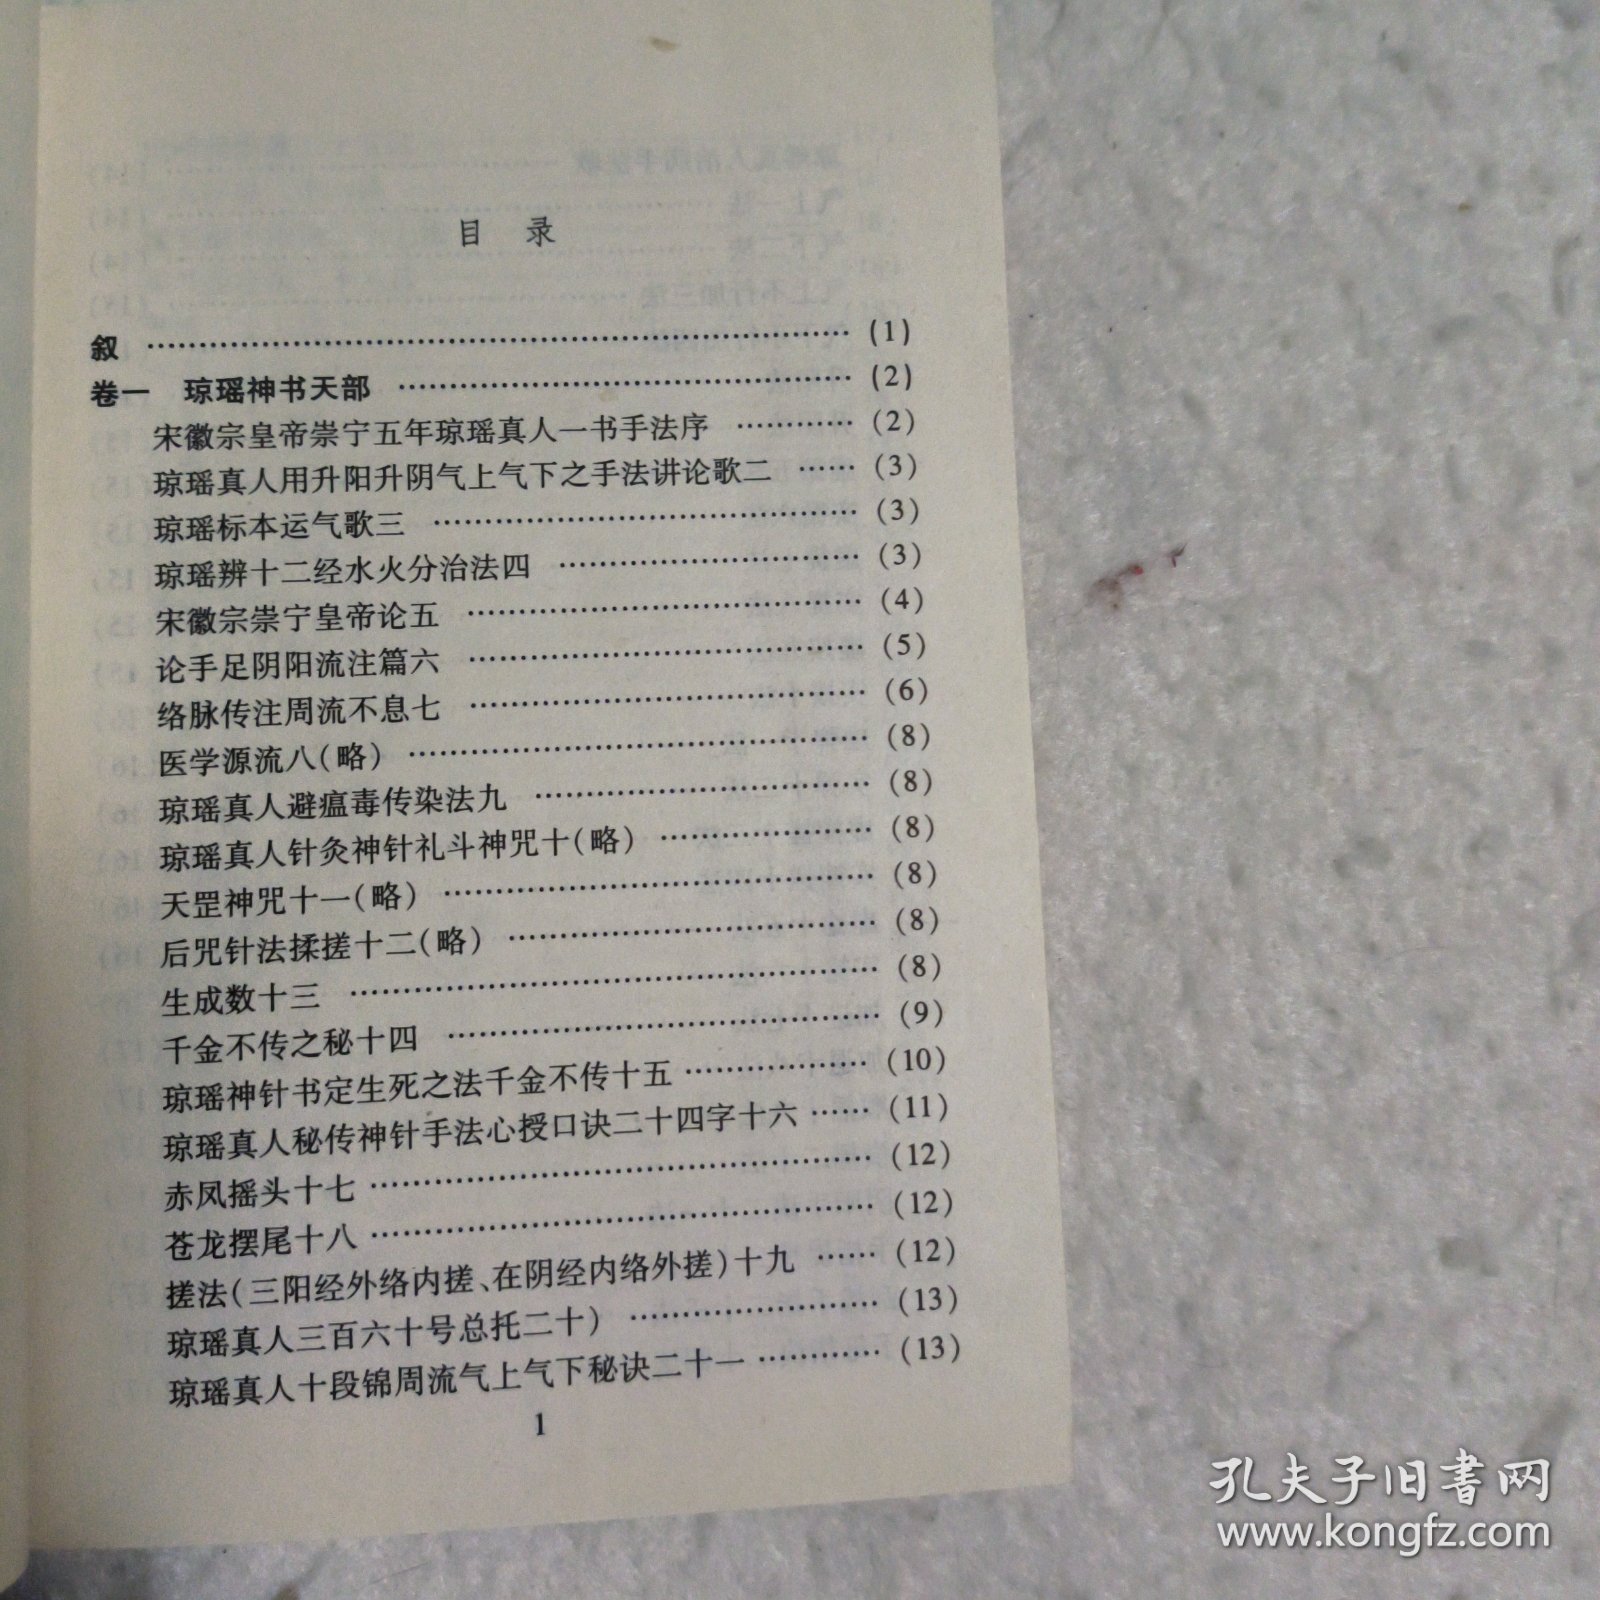 目 录
叙 ……………………………………………………… (1)
卷一 琼瑶神书天部 ………………………………… (2)
宋徽宗皇帝崇宁五年琼瑶真人一书手法序 ………… (2)
琼瑶真人用升阳升阴气上气下之手法讲论歌二 …… (3)
琼瑶标本运气歌三 ………………………………… (3)
琼瑶辨十二经水火分治法四 ……………………… (3)
宋徽宗崇宁皇帝论五 ……………………………… (4)
论手足阴阳流注篇六 ……………………………… (5)
络脉传注周流不息七 ……………………………… (6)
医学源流八(略) …………………………………… (8)
琼瑶真人避瘟毒传染法九 ………………………… (8)
琼瑶真人针灸神针礼斗神咒十(略) ……………… (8)
天罡神咒十一(略) ………………………………… (8)
后咒针法揉搓十二(略) …………………………… (8)
生成数十三 ………………………………………… (8)
千金不传之秘十四 ………………………………… (9)
琼瑶神针书定生死之法千金不传十五 …………… (10)
琼瑶真人秘传神针手法心授口诀二十四字十六 …… (11)
赤凤摇头十七 ……………………………………… (12)
苍龙摆尾十八 ……………………………………… (12)
搓法(三阳经外络内搓、在阴经内络外搓)十九 …… (12)
琼瑶真人三百六十号总托二十) ………………… (13)
琼瑶真人十段锦周流气上气下秘诀二十一 ………… (13)
1
孔夫子旧书网
www.kongfz.com